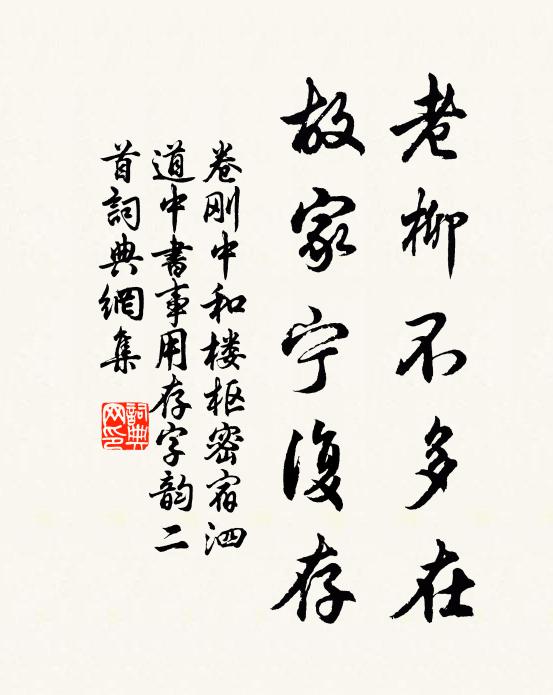 老柳不多在
故家宁復存
卷刚中和楼枢密宿泗
道中書事用存字韵二
首詞典網集
詞典网印